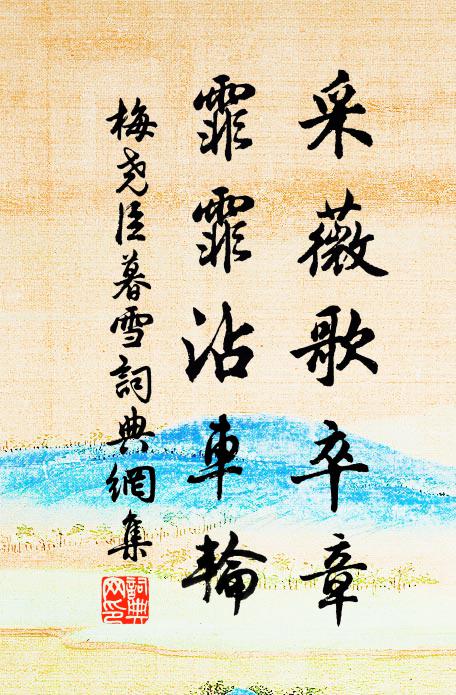 采薇歌卒章
霏霏沾車輪
梅尧臣暮雪詞典網集
詞典網印